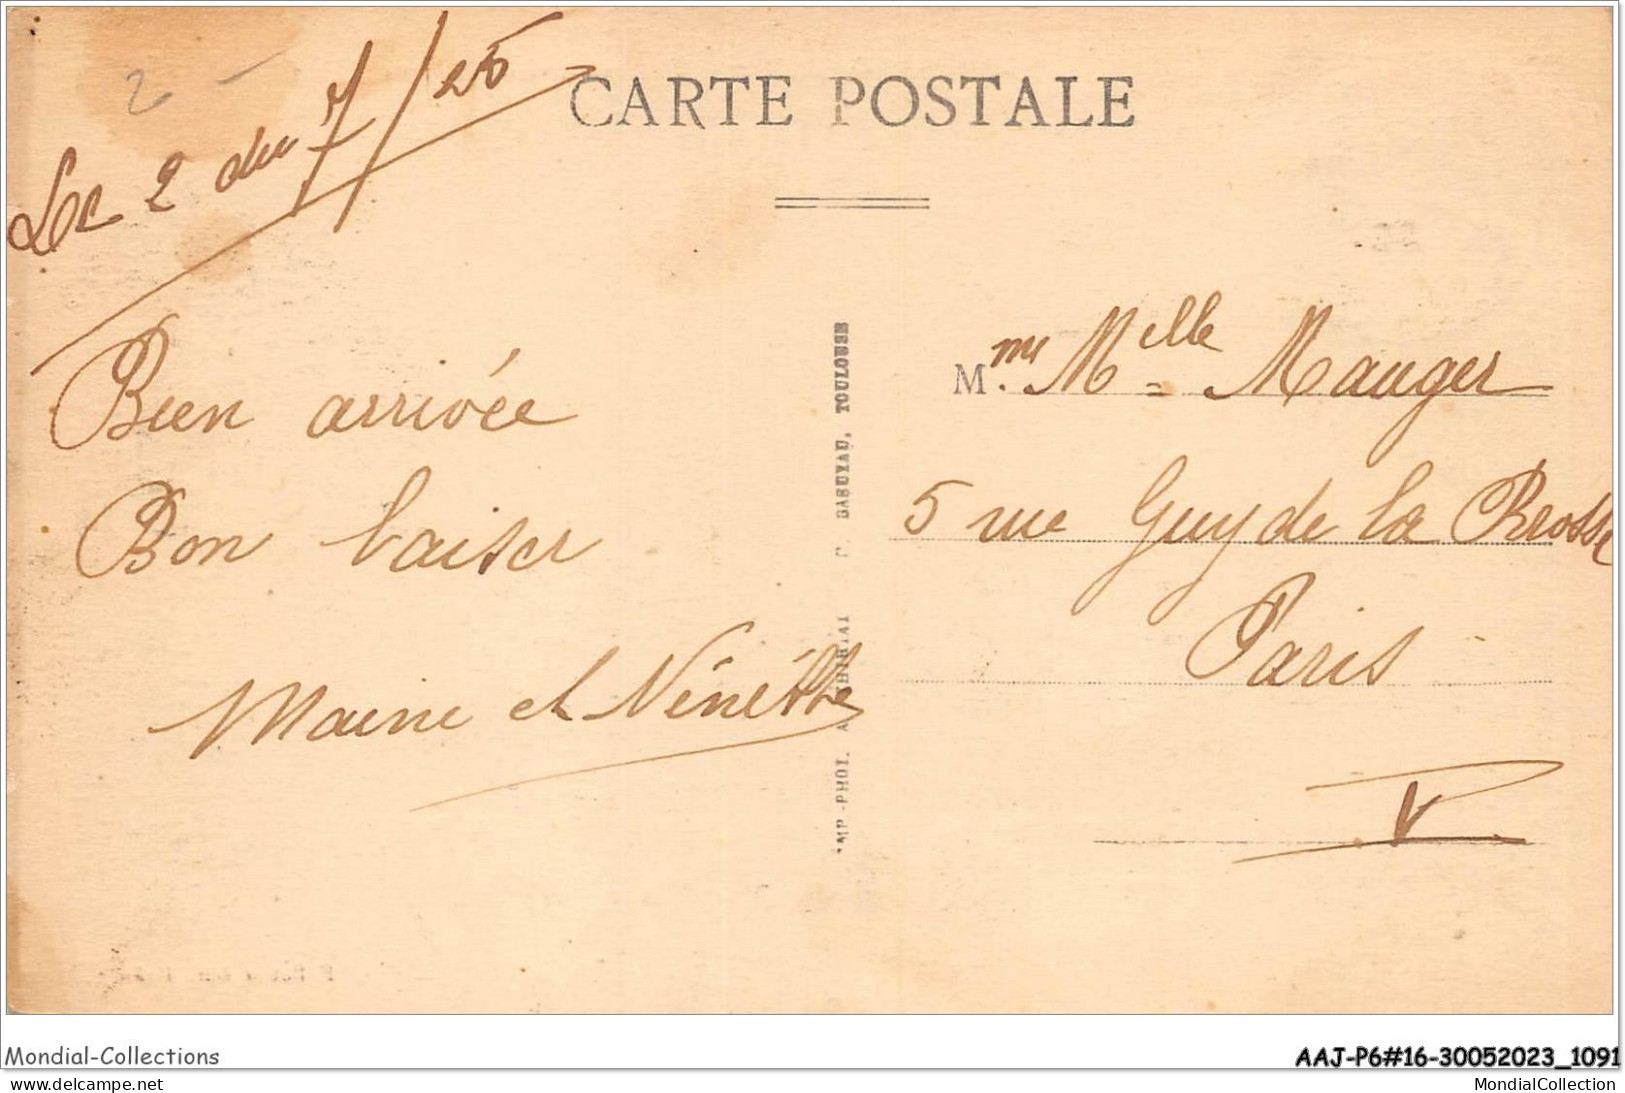 Le 2 du 7/25
CARTE POSTALE
Bien arrivée
Bon baiser
Maine et Nénétte
IMP.-PHOT. A. THIRIAT C. BASUYAU, TOULOUSE
M.me Melle Mauger
5 rue Guy de la Brosse
Paris
V
Mondial-Collections
AAJ-P6#16-30052023_1091
ma-collection-cpa.com
MondialCollection